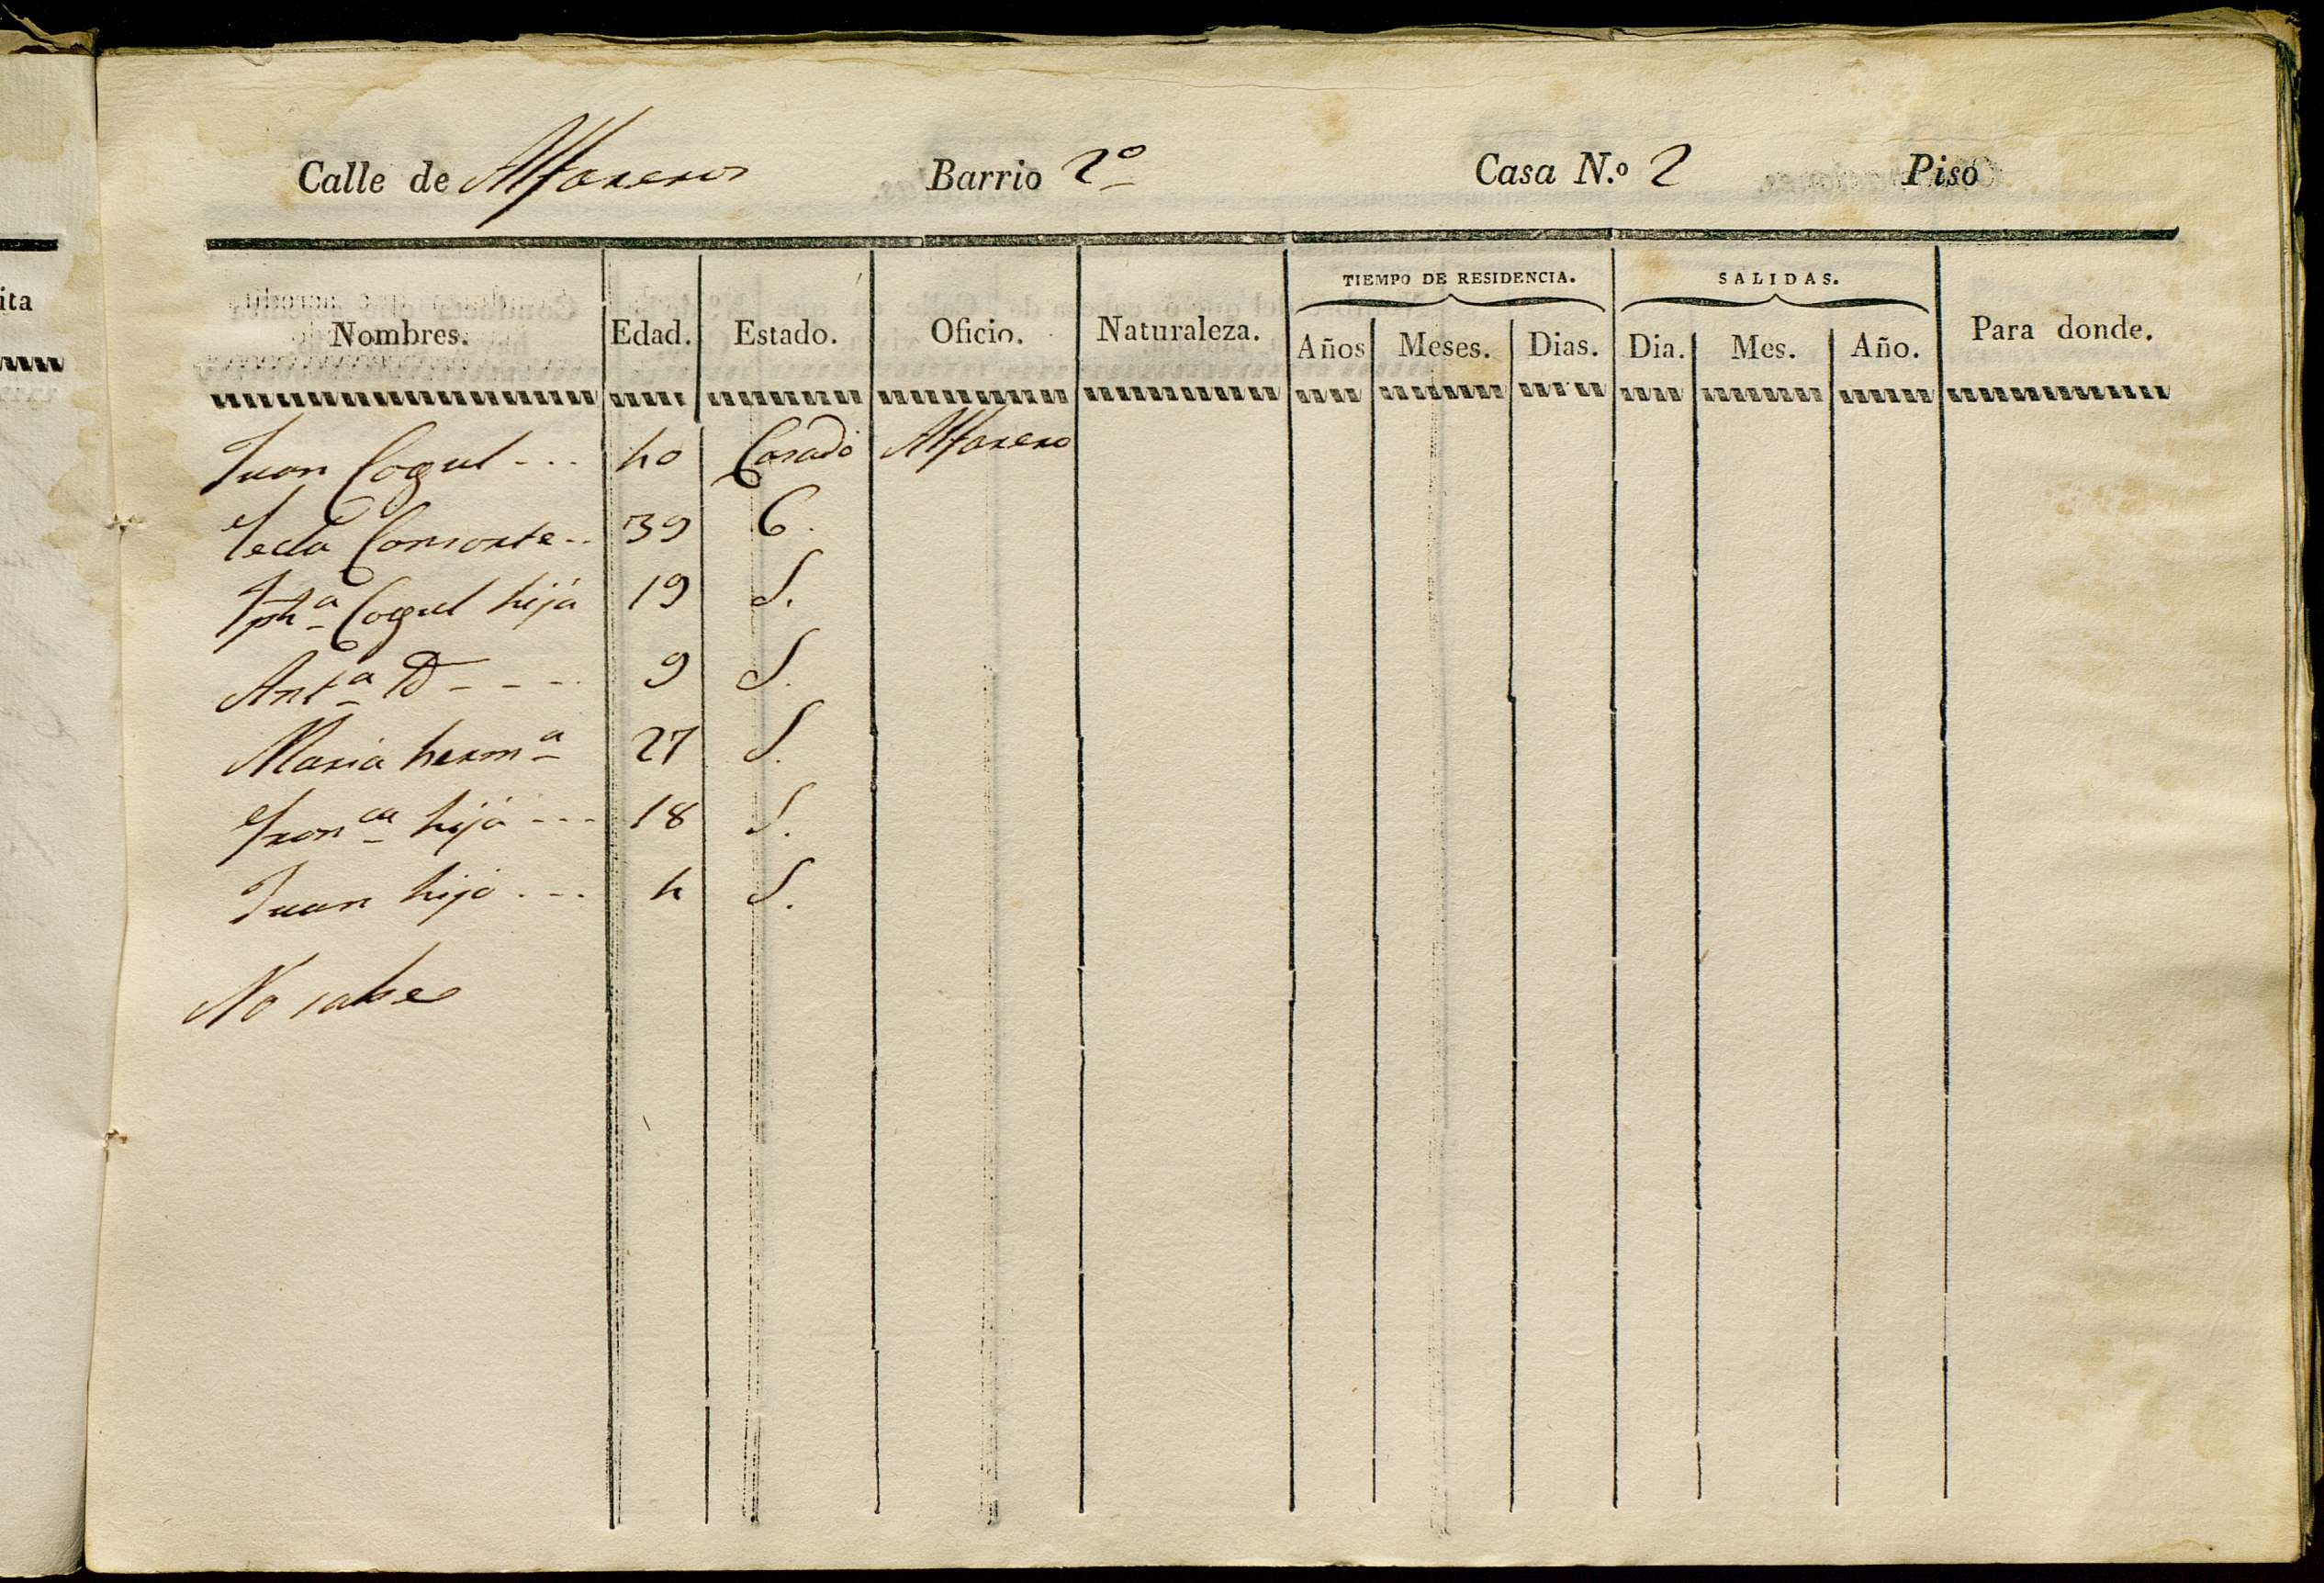 ita
Calle de Alfareros Barrio 2º Casa N.º 2 Piso
TIEMPO DE RESIDENCIA. SALIDAS.
Nombres. Edad. Estado. Oficio. Naturaleza. Años Meses. Dias. Dia. Mes. Año. Para donde.
Juan Cogul --- 40 Casado Alfarero
Tecla Consorte -- 39 C.
Jphª Cogul hija 19 S.
Antª Yd ---- 9 S.
Maria hermª 27 S.
Franca hija --- 18 S.
Juan hijo --- 4 S.
No sabe